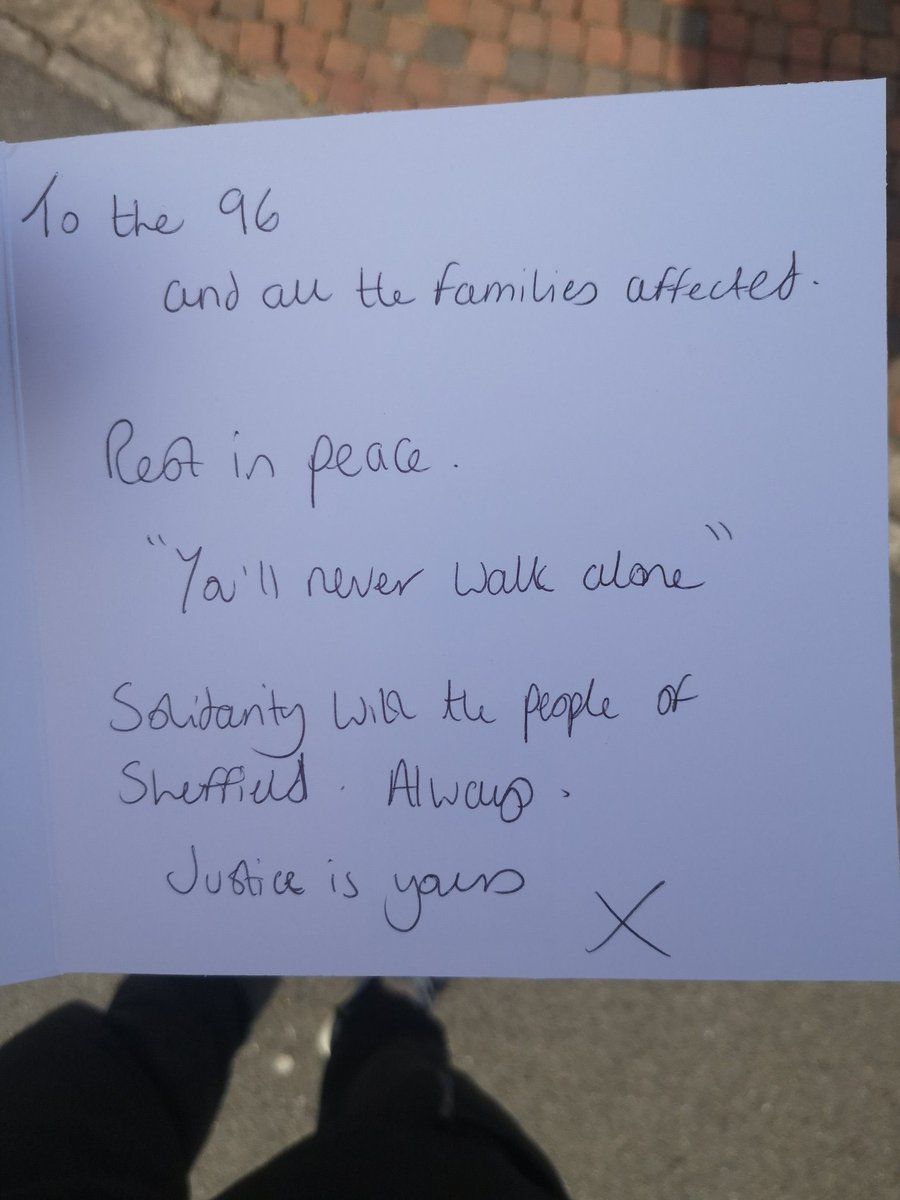 To the 96
and all the families affected.
Rest in peace.
"You'll never walk alone"
Solidarity with the people of
Sheffield. Always.
Justice is yours
X